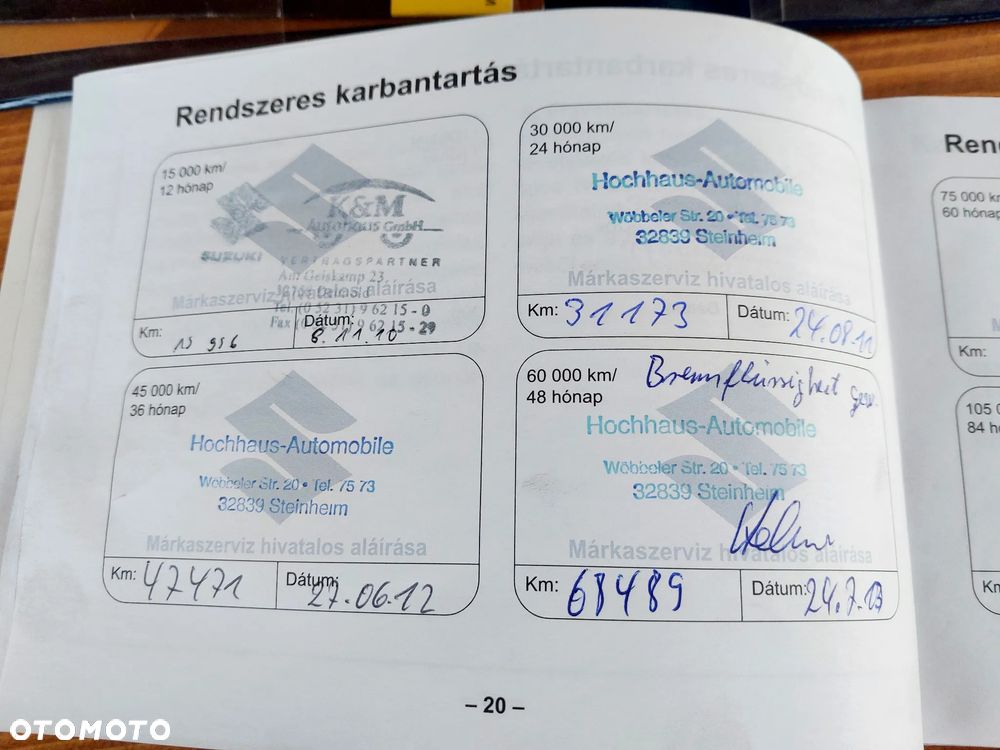 Rendszeres karbantartás
15 000 km/
12 hónap
K&M
Autohaus GmbH
SUZUKI VERTRAGSPARTNER
Am Gelskamp 23
Detmold
Márkaszerviz hivatalos aláírása
Tel. (0 52 31) 9 62 15 - 0
Fax (0 52 31) 9 62 15 - 29
Km: 15 956
Dátum: 8.11.10
30 000 km/
24 hónap
Hochhaus-Automobile
Wöbbeler Str. 20 • Tel. 75 73
32839 Steinheim
Márkaszerviz hivatalos aláírása
Km: 31173
Dátum: 24.08.11
45 000 km/
36 hónap
Hochhaus-Automobile
Wöbbeler Str. 20 • Tel. 75 73
32839 Steinheim
Márkaszerviz hivatalos aláírása
Km: 47471
Dátum: 27.06.12
60 000 km/
48 hónap
Bremsflüssigkeit gew.
Hochhaus-Automobile
Wöbbeler Str. 20 • Tel. 75 73
32839 Steinheim
Márkaszerviz hivatalos aláírása
Km: 68489
Dátum: 24.7.13
– 20 –
75 000
60 hónap
Km:
105
84
OTOMOTO